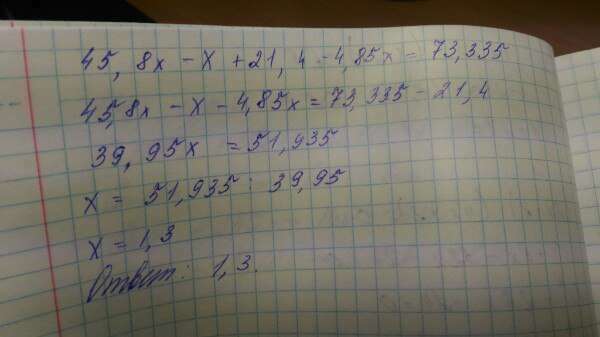 45,8x - x + 21,4 - 4,85x = 73,335
45,8x - x - 4,85x = 73,335 - 21,4
39,95x = 51,935
x = 51,935 : 39,95
x = 1,3
Ответ: 1,3.